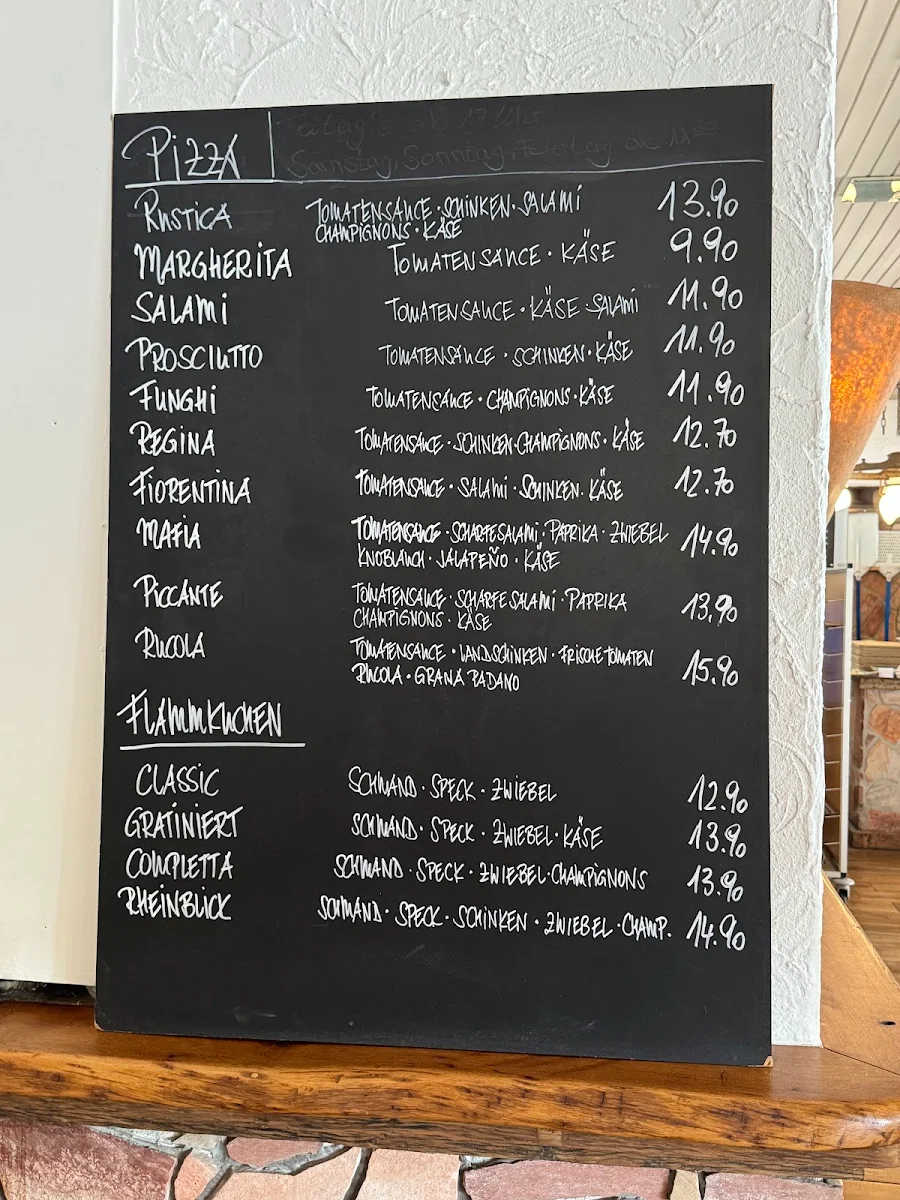 PIZZA
Freitag's ab 17 Uhr
Samstag, Sonntag, Feiertag ab 11
RUSTICA TOMATENSAUCE · SCHINKEN · SALAMI 13.90
CHAMPIGNONS · KÄSE
MARGHERITA TOMATENSAUCE · KÄSE 9.90
SALAMI TOMATENSAUCE · KÄSE · SALAMI 11.90
PROSCIUTTO TOMATENSAUCE · SCHINKEN · KÄSE 11.90
FUNGHI TOMATENSAUCE · CHAMPIGNONS · KÄSE 11.90
REGINA TOMATENSAUCE · SCHINKEN · CHAMPIGNONS · KÄSE 12.70
FIORENTINA TOMATENSAUCE · SALAMI · SCHINKEN · KÄSE 12.70
MAFIA TOMATENSAUCE · SCHARFE SALAMI · PAPRIKA · ZWIEBEL 14.90
KNOBLAUCH · JALAPEÑO · KÄSE
PICCANTE TOMATENSAUCE · SCHARFE SALAMI · PAPRIKA 13.90
CHAMPIGNONS · KÄSE
RUCOLA TOMATENSAUCE · LANDSCHINKEN · FRISCHE TOMATEN 15.90
RUCOLA · GRANA PADANO
FLAMMKUCHEN
CLASSIC SCHMAND · SPECK · ZWIEBEL 12.90
GRATINIERT SCHMAND · SPECK · ZWIEBEL · KÄSE 13.90
COMPLETTA SCHMAND · SPECK · ZWIEBEL · CHAMPIGNONS 13.90
RHEINBLICK SCHMAND · SPECK · SCHINKEN · ZWIEBEL · CHAMP. 14.90